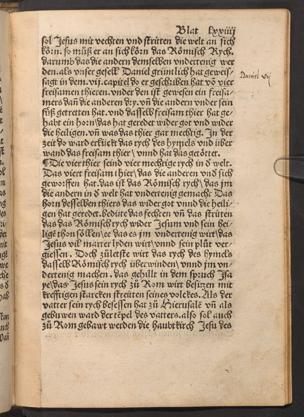 Blat lxxiiij
sol Jesus mit vechten vnd strüten die welt an sich
körn. so müß er an sich körn das Römisch Rych.
darumb das die andern demselben vndertenig wer
den. als vnser gesell Daniel grüntlich hat geweis-
sagt in dem .vij. capitel do er geschriben hat vō vier
freisamen thieren. vnder den ist gewesen ein freisa-
mers dañ die anderen dry. vñ die andern vnder sein
füß getretten hat. vnd dasselb freisam thier hat ge-
habt ein horn das hat geredet wider got vnd wider
die heiligen. vñ was das thier gar mechtig. In der
zeit do ward erkückt das rych des hymels vnd über
wand das freisam thier / vnnd hat das getötet.
¶ Die vier thier seind vier mechtige rych in d welt.
Das viert freisam thier / das die anderen vnd sich
geworffen hat. das ist das Römisch rych / das jm
die andern in d welt hat vndertenig gemacht. Das
horn desselben thiers das wider got vnnd die heili-
gen hat geredet. bedüt das fechten vñ das strüten
das das Römisch rych wider Jesum vnd sein hei-
lige thon söllen / ee das es jm vndertenig wirt / das
Jesus vil marter lyden wirt / vnnd sein plüt ver-
giessen. Doch zületste wirt das rych des hymels
dasselb Römisch rych überwinden / vnnd jm vn-
dertenig machen. das gehillt in dem spruch Isa
ye / das Jesus sein rych zü Rom wirt besitzen mit
trefftigen starcken strüten seines volckes. Als der
vatter sein rych besessen hat zü Hierusalē vñ als
gehuwen ward der tēpel des vatters. also sol auch
zü Rom gebawt werden die haubtkirch Jesu des
Daniel vij